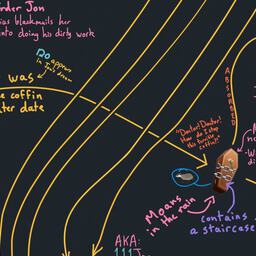 rder Jon
ias blackmails her
into doing his dirty work
DO appears
in Jon's dream
was
e coffin
ter date
ABSORBED
"Doctor! Doctor!
How do I stop
this horrible
coffin?"
Moans
in the rain
contains
a staircase
AKA: